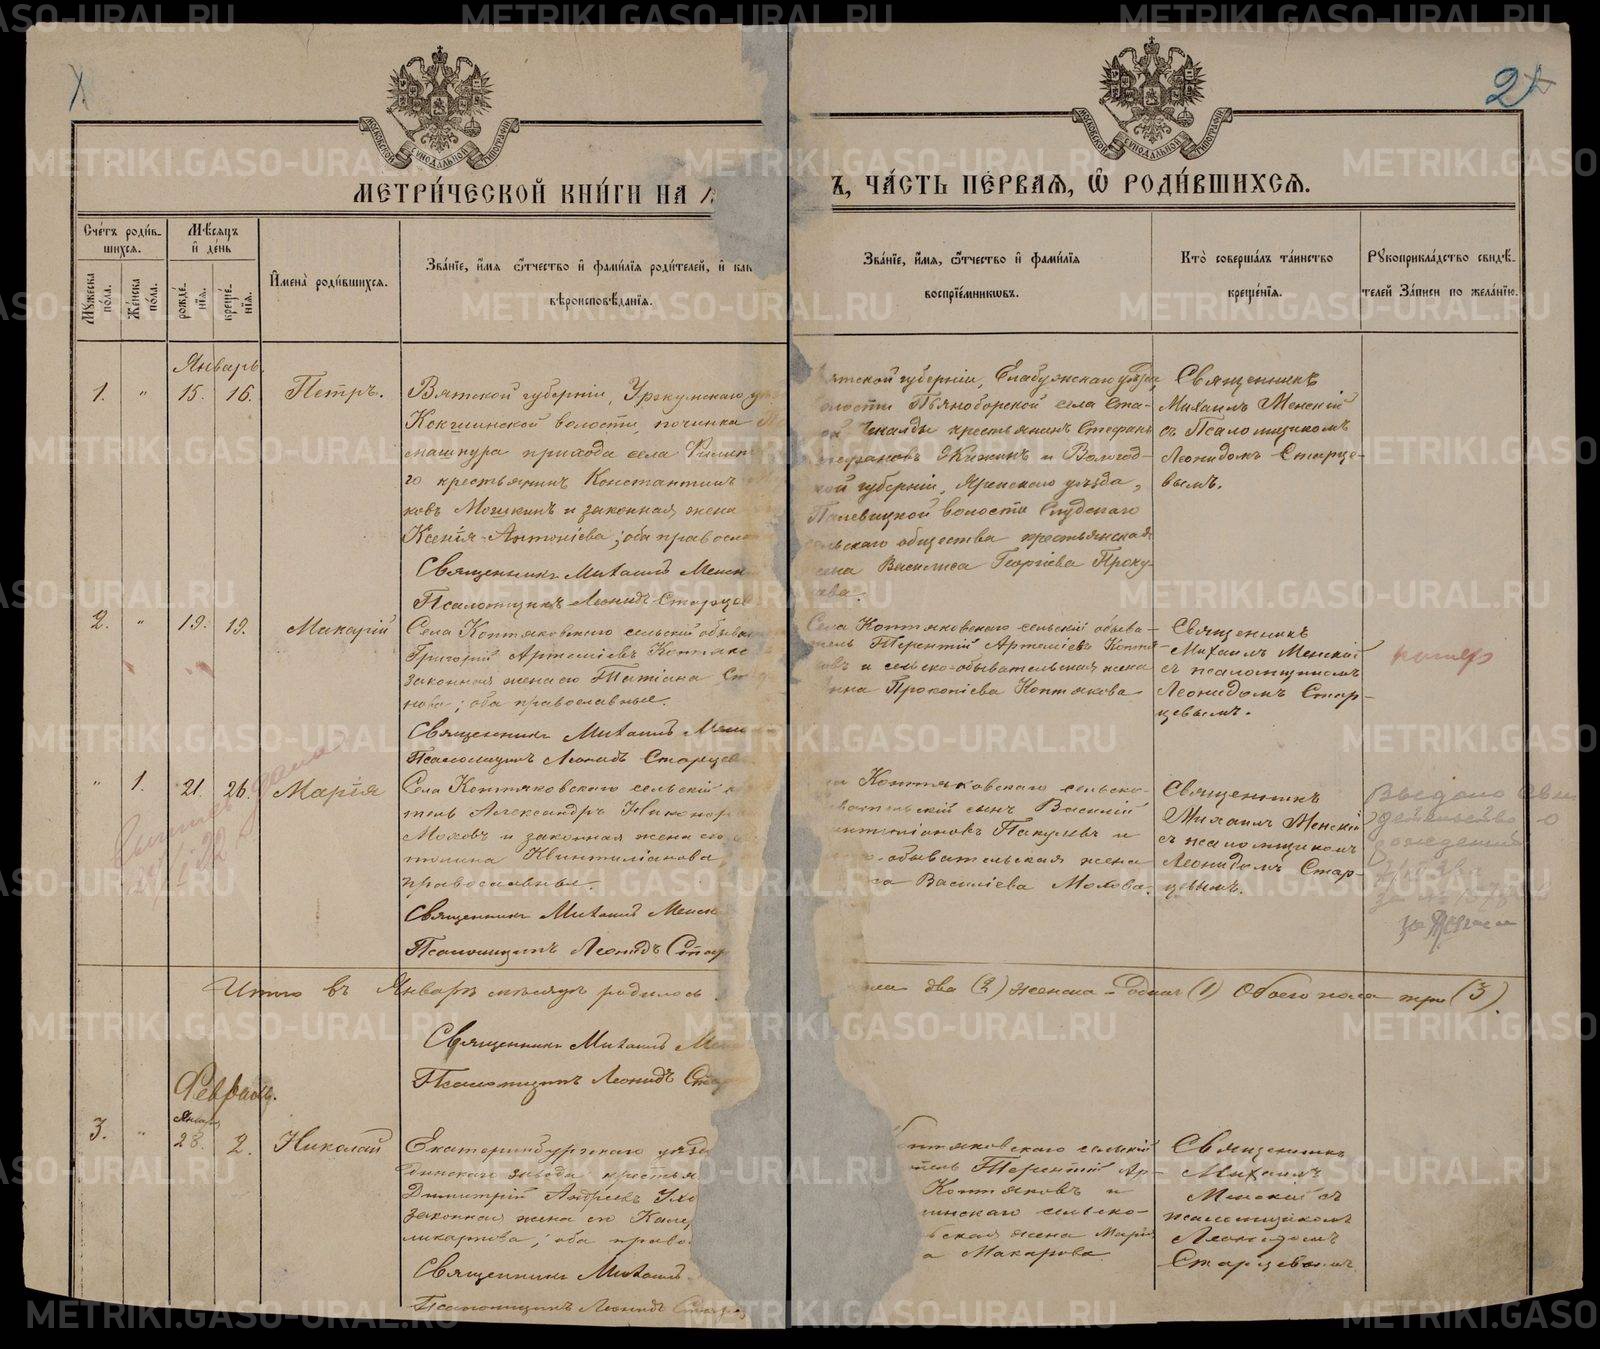 2
МОСКОВСКОЙ СѴНОДАЛЬНОЙ ТИПОГРАФІИ
МОСКОВСКОЙ СѴНОДАЛЬНОЙ ТИПОГРАФІИ
МЕТРИ́ЧЕСКОЙ КНИ́ГИ НА 1
Ъ, ЧА́СТЬ ПЕ́РВАЯ, Ѽ РОДИ́ВШИХСЯ.
Сче́тъ роди́в-
шихся.
Му́жеска по́ла.
Же́нска по́ла.
Мѣ́сяцъ и҆ де́нь
рожде́-
нія.
креще́-
нія.
И҆мена̀ роди́вшихся.
Зва́ніе, и҆́мя ѻ҆́тчество и҆ фами́лія роди́телей, и҆ как
вѣроисповѣ́данія.
Зва́ніе, и҆́мя, ѻ҆́тчество и҆ фами́лія
воспріе́мниковъ.
Кто̀ соверша́лъ та́инство
креще́нія.
Рукоприкла́дство свидѣ́-
телей за́писи по жела́нію.
Январь.
1. " 15. 16. Петръ.
Вятской губерніи, Уржумскаго у
Кокшинской волости, починка
машнура прихода села Филип
го крестьянинъ Константинъ
ковъ Мошкинъ и законная жена
Ксенія Антоніева; оба правосла
Священникъ Михаилъ Менск
Псаломщикъ Леонидъ Старцов
ятской губерніи, Елабужскаго уѣзда,
олости Пьяноборской села Ста-
Чекалды крестьянинъ Стефанъ
тефановъ Жижинъ и Вологод-
кой губерніи, Яренскаго уѣзда,
Палевицкой волости Слудскаго
ельскаго общества крестьянская
жена Василиса Георгіева Проку-
ева.
Священникъ
Михаилъ Менскій
съ Псаломщикомъ
Леонидомъ Старце-
вымъ.
2. " 19. 19. Макарій
Села Коптяковскаго сельскій обыва
Григорій Артеміевъ Коптяк
законная жена его Татіана С
нова; оба православные.
Священникъ Михаилъ Менс
Псаломщикъ Леонидъ Старцев
Села Коптяковскаго сельскій обыва-
тель Терентій Артеміевъ Коптя-
ковъ и сельско-обывательская жена
Анна Прокопіева Коптякова
Священникъ
Михаилъ Менскій
съ псаломщикомъ
Леонидомъ Стар-
цевымъ.
помер
" 1. 21. 26. Марія
Села Коптяковскаго сельскій о
тель Александръ Никонор
Моховъ и законная жена его
Квинтиліанова
православные.
Священникъ Михаилъ Менск
Псаломщикъ Леонидъ Стар
Коптяковскаго сельско-
вательскій сынъ Василій
интиліановъ Пакулевъ и
обывательская жена
са Василіева Мохова.
Священникъ
Михаилъ Менскій
съ псаломщикомъ
Леонидомъ Стар-
цевымъ.
Выдано сви
дѣтельство о
рождении
Итого въ Январѣ мѣсяцѣ родилось
два (2) женска - одна (1) Обоего пола три (3).
Священникъ Михаилъ Ме
Псаломщикъ Леонидъ Стар
Февраль.
Январь
3. " 28. 2. Николай
Екатеринбургскаго уѣзд
завода крестья
Димитрій Андреевъ Ухо
законная жена его Кале
ликарпова; оба право
Священникъ Михаилъ
Псаломщикъ Леонидъ Старц
оптяковскаго сельскій
тель Терентій Ар-
Коптяковъ и
инскаго сельско-
ьская жена Марі
а Макарова
Священникъ
Михаилъ
Менскій съ
псаломщикомъ
Леонидомъ
Старцевымъ.
METRIKI.GASO-URAL.RU